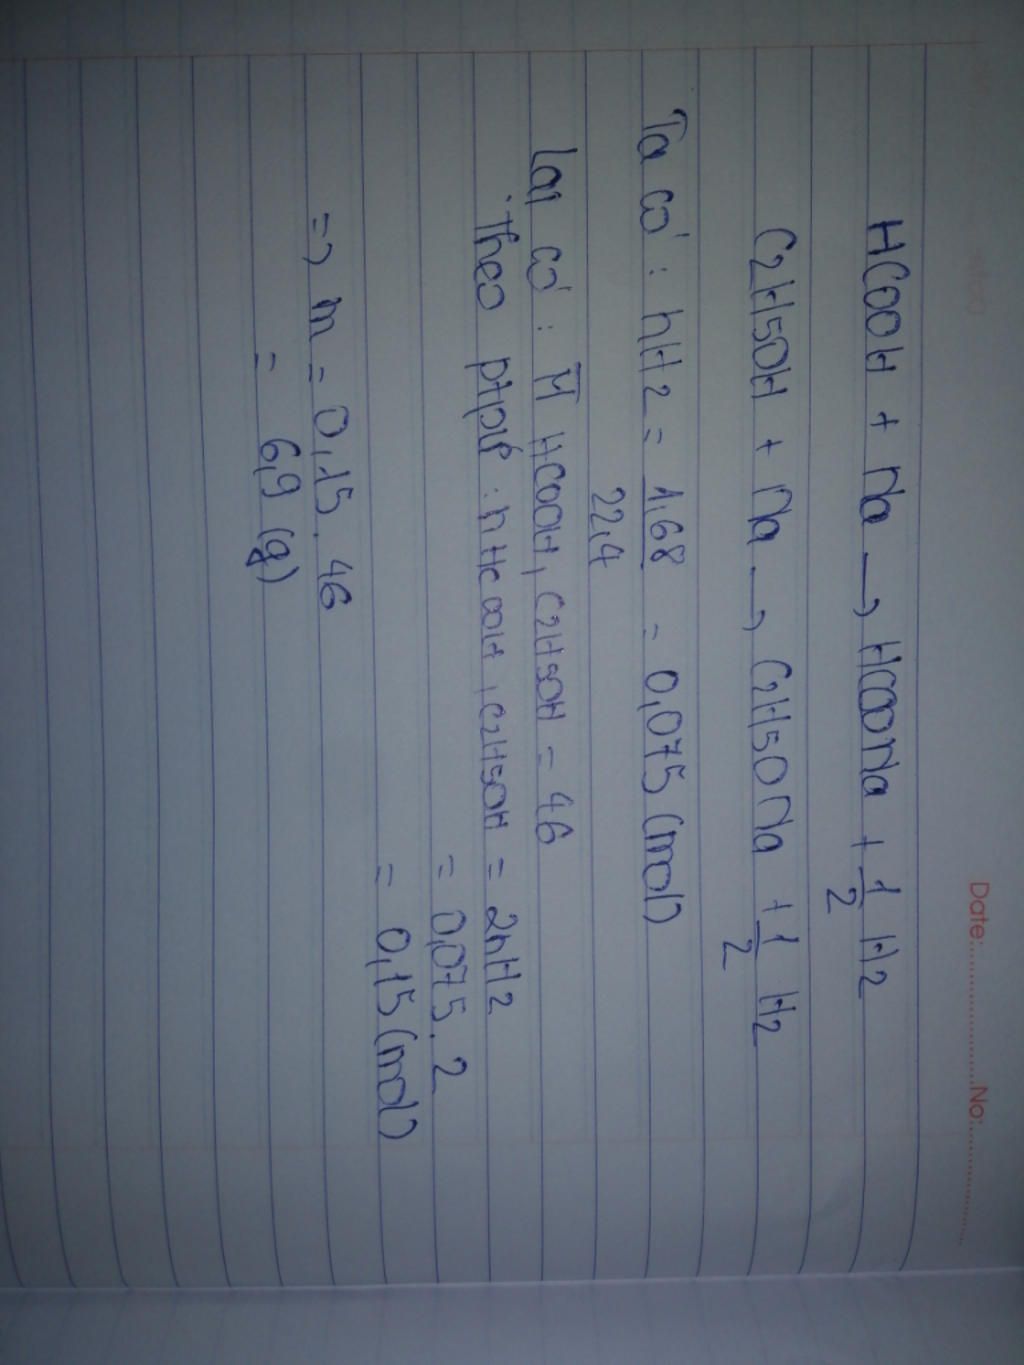 Date:..................No:..................
HCOOH + Na → HCOONa + 1/2 H2
C2H5OH + Na → C2H5ONa + 1/2 H2
Ta có : nH2 = 1,68/22,4 = 0,075 (mol)
Lại có : M̅ HCOOH, C2H5OH = 46
Theo ptpư : nHCOOH, C2H5OH = 2nH2
= 0,075. 2
= 0,15 (mol)
=> m = 0,15. 46
= 6,9 (g)